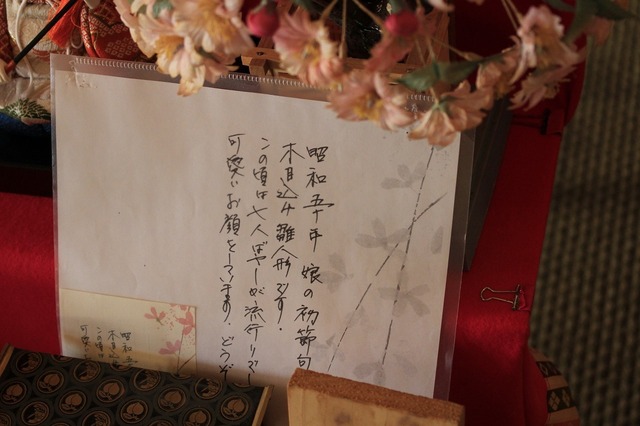 昭和五十年 娘の初節句
木目込み雛人形です。
この頃は七人ばやしが流行りでし
可愛いお顔をしています、どうぞ
昭和五
木目込
この頃は
可愛い